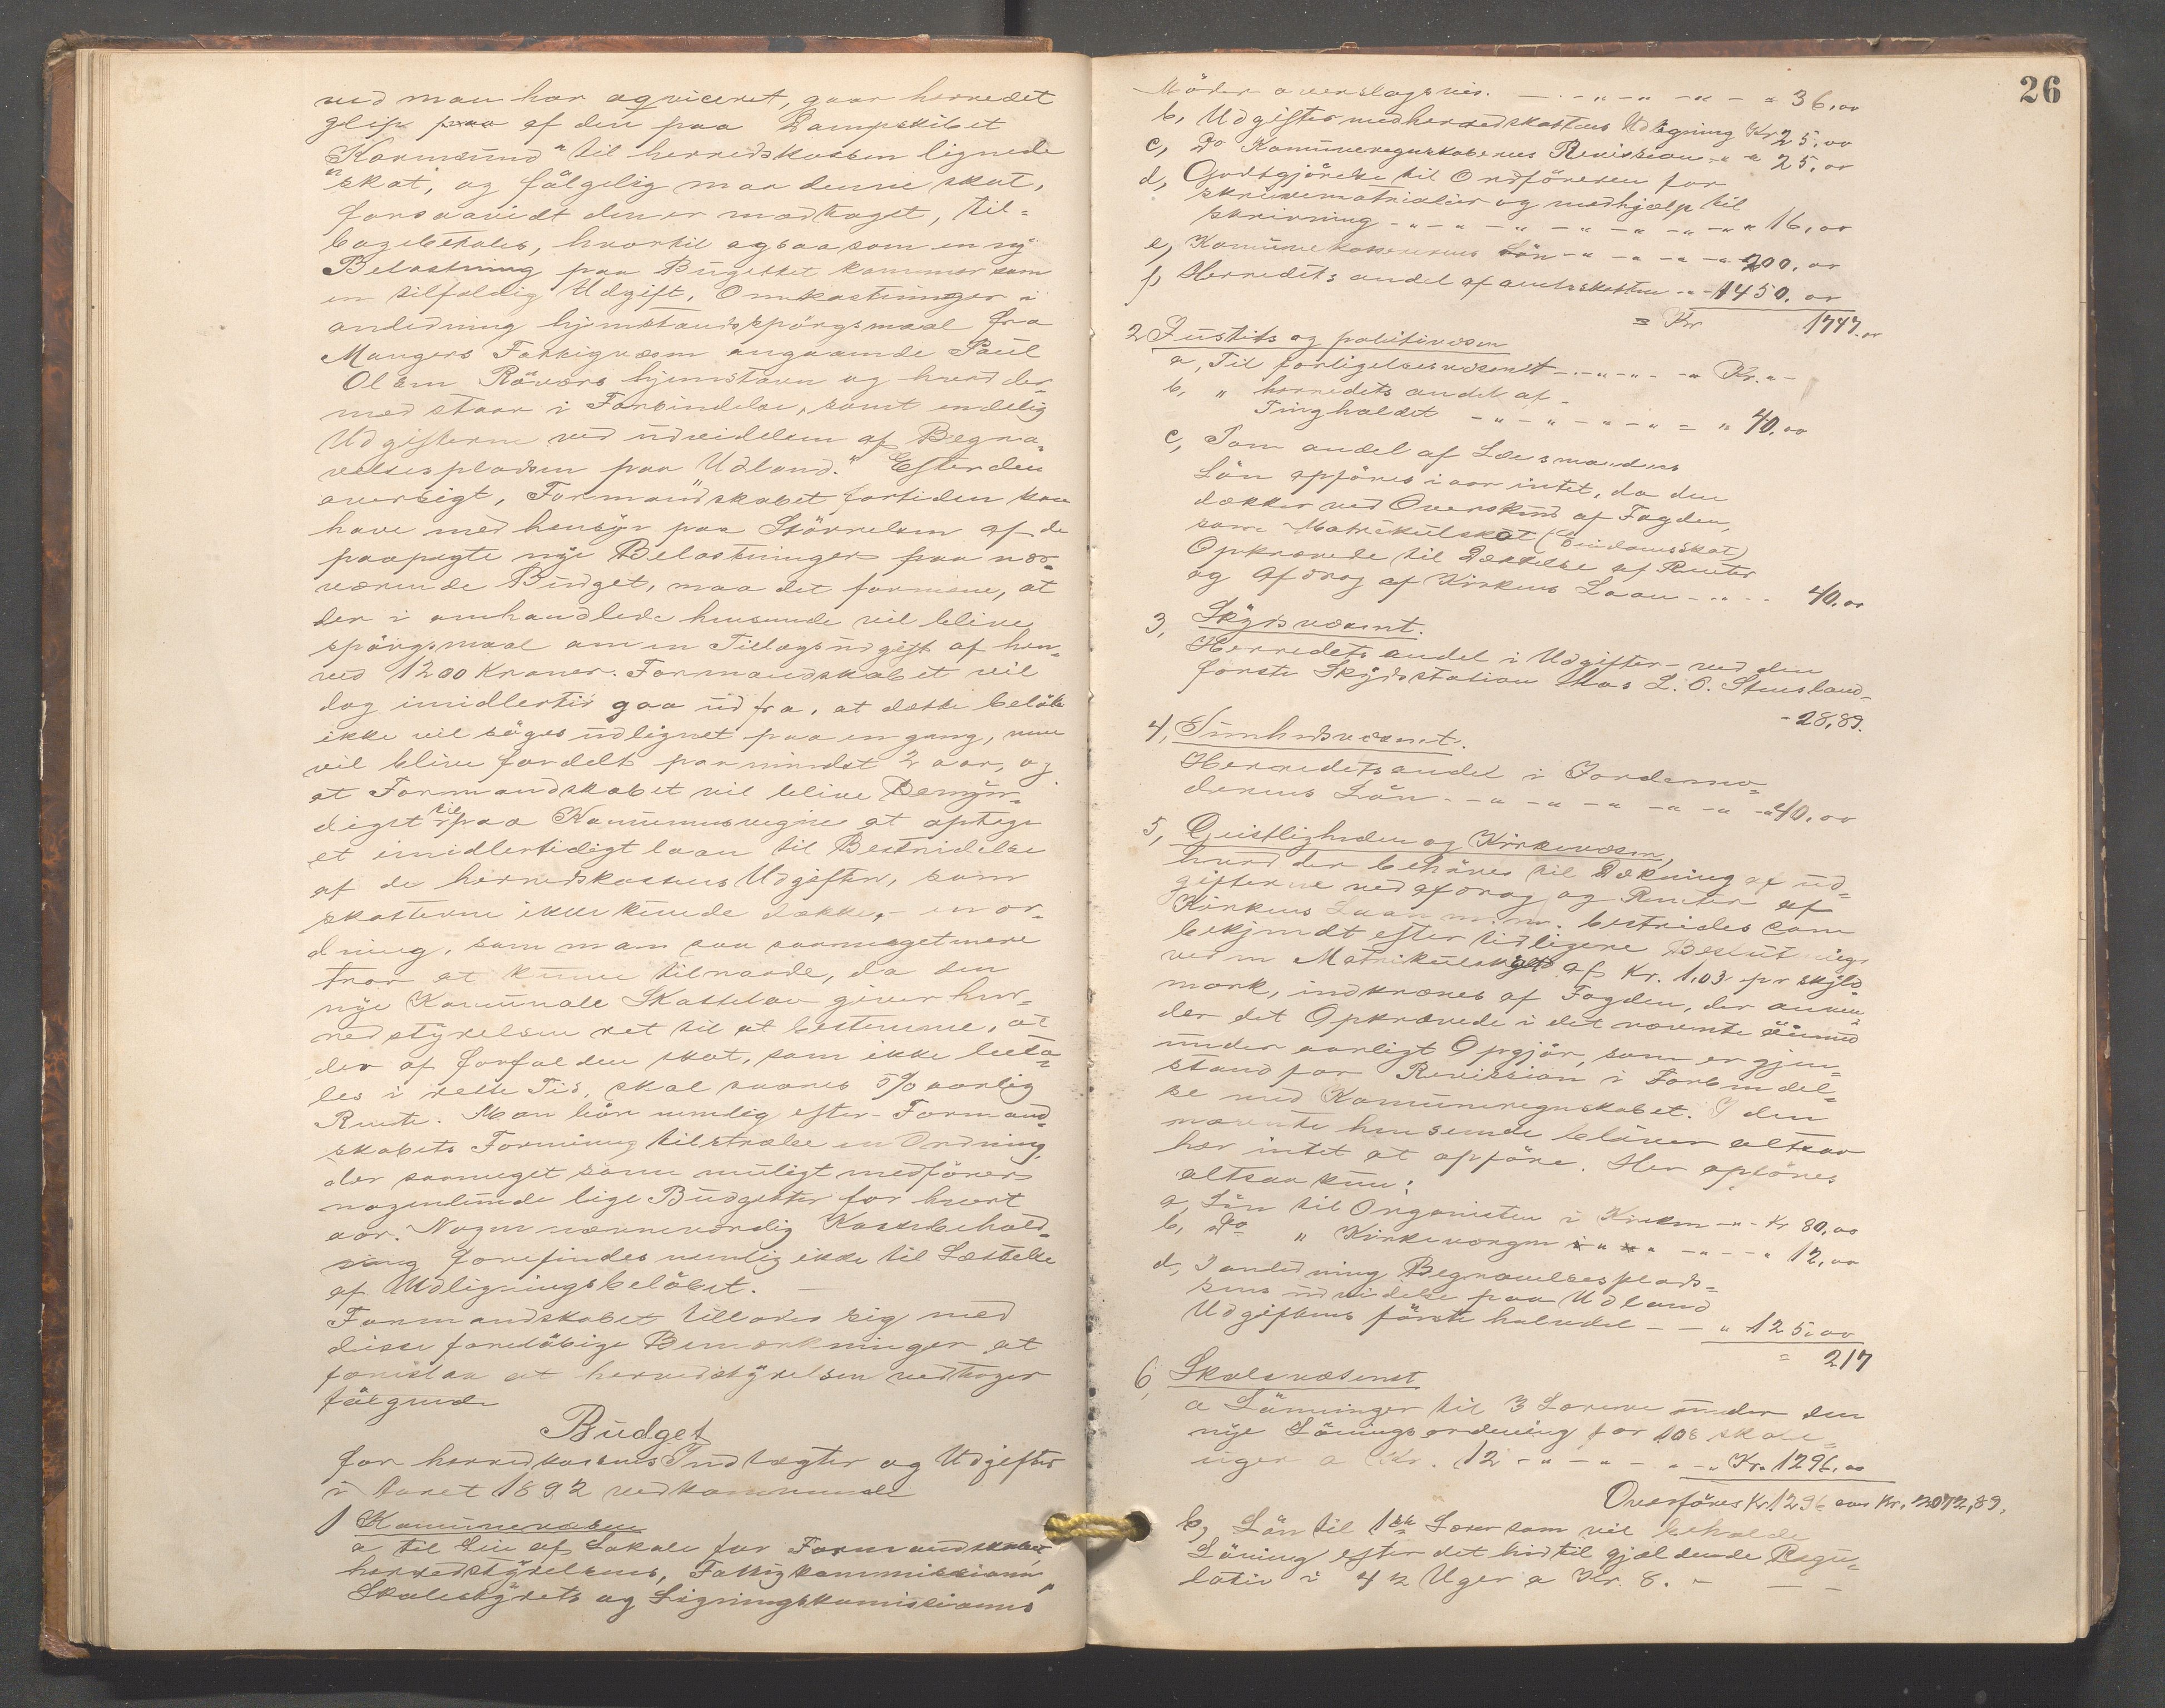 ved man har aqviceret, gaar herredet
glip paa af den paa Dampskibet
"Karmsund" til herredskassen lignede
skat, og fölgelig maa denne skat,
forsaavidt den er modtaget, til=
bagebetales, hvortil ogsaa som en ny
Belastning paa Budgettet kommer som
en tilfældig Udgift, Omkostninger i
anledning hjemstavnsspörgsmaal fra
Mangers Fattigvæsen angaaende Paul
Olsen Rövers hjemstavn og hvad der=
med staar i Forbindelse, samt endelig
Udgifterne ved udvidelsen af Begra=
velsespladsen paa Udland." Efter den
oversigt, Formandskabet fortiden kan
have med hensyn paa Störrelsen af de
paapegte nye Belastninger paa nær=
værende Budget, maa det formene, at
der i omhandlede henseende vil blive
spörgsmaal om en Tillægsudgift af hen=
ved 1200 Kroner. Formandskabet vil
dog imidlertid gaa ud fra, at dette belöb
ikke vil söges udlignet paa en gang, men
vil blive fordelt paa mindst 2 aar, og
at Formandskabet vil blive Bemyn=
diget til paa Kommunens vegne at optage
et imidlertidigt laan til Bestridelse
af de herredskassens Udgifter, som
skatterne ikke kunde dække, - en or=
dning, som man saa saameget mere
tror at kunne tilraade, da den
nye Kommunale Skattelov giver her=
redstyrelsen ret til at bestemme, at
der af forfalden skat, som ikke beta=
les i rette Tid, skal svares 5% aarlig
Rente. Man bör nemlig efter Formand=
skabets Formening tilstræbe en Ordning,
der saameget som muligt medförer
nogenlunde lige Budgetter for hvert
aar. Nogen nævneværdig Kassebehold=
ning forefindes nemlig ikke til Lettelse
af Udligningsbelöbet. —
Formandskabet tillader sig med
disse foreløbige Bemærkninger at
foreslaa at herredstyrelsen vedtager
fölgende
Budget
for herredkassens Indtægter og Udgifter
i Aaret 1892 vedkommende
1 Kommunevæsen
a til Leie af Lokale for Formandskabet,
herredstyrelsens, Fattigkommissionen,
Skolestyrets og Ligningskomissionens
26
Möder overslagsvis. — - " - " - " - " 36,00
b, Udgifter med herredskattens Udligning Kr 25,00
c, Do Kommuneregnskabernes Revission - " " 25,00
d, Godtgjörelse til Ordföreren for
skrivematrialier og medhjælp til
skrivning - " - " - " - " - " - " - " 16,00
e, Kommunekassererens Lön - " - " - " - " 200,00
f, Herredets andel af amtsskatten - " - 1450,00
= Kr 1747,00
2 Justits og politivæsen
a, Til forligelsesvæsenet - " - " - " Kr. " -
b, " herredets andel af
Tingholdet - " - " - " - " = " 40,00
c, Som andel af Lensmandens
Lön opföres i aar intet, da den
dækkes ved Overskud af Fogden,
som Matrikulskat (Eiendomsskat)
Opkrævede til Dækkelse af Renter
og Afdrag af Kirkens Laan - " - - 40,00
3, Skydsvæsenet.
Herredets andel i Udgifter ved den
förste Skydsstation hos L. O. Stensland=
- 28,89.
4, Sundhedsvæsenet.
Herredets andel i Jordemo=
derens Lön - " - " - " - " - " - " 40,00
5, Geistligheden og Kirkevæsen,
hvad der behöves til Dækning af ud=
gifterne ved afdrag og Renter af
Kirkens Laan m. m. bestrides som
bekjendt efter tidligere Beslutning
ved en Matrikulskat af Kr. 1,03 pr skyld=
mark, indkræves af Fogden, der anven=
der det Opkrævede i det nævnte öiemed
under aarligt Opgjör, som er gjen=
stand for Revission i Forbindel=
se med Kommuneregnskabet. I den
nævnte henseende bliver altsaa
her intet at opföre. Her opföres
altsaa kun:
a, Lön til Organisten i Kirken - " - Kr 80,00
b, Do " Kirkevergen - " - " - " - - " 12,00
d, I anledning Begravelsesplads=
sens udvidelse paa Udland
Udgiftens förste halvdel — — " 125,00
= 217
6, Skolevæsenet
a Lönninger til 3 Lærere under den
nye Löningsordning for 108 skole=
uger a Kr. 12 - " - " - " - " Kr. 1296,00
Overföres Kr. 1296 Kr. 2072,89.
b, Lön til 1 Lærer som vil beholde
Löning efter det hidtil gjældende Regu=
lativ i 42 Uger a Kr. 8. - — —